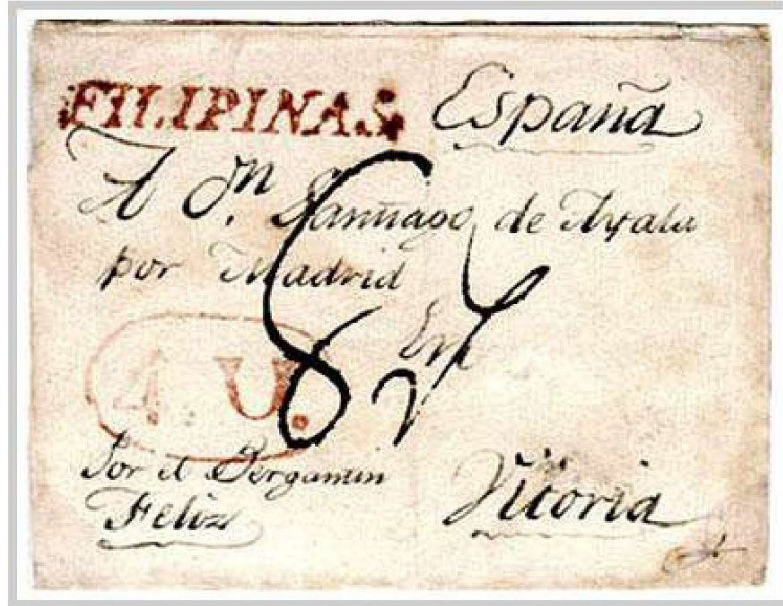 FILIPINAS España
A Dn. Santiago de Ayala
por Madrid
En
4 U.
8
Por el Bergantin
Feliz
Vitoria